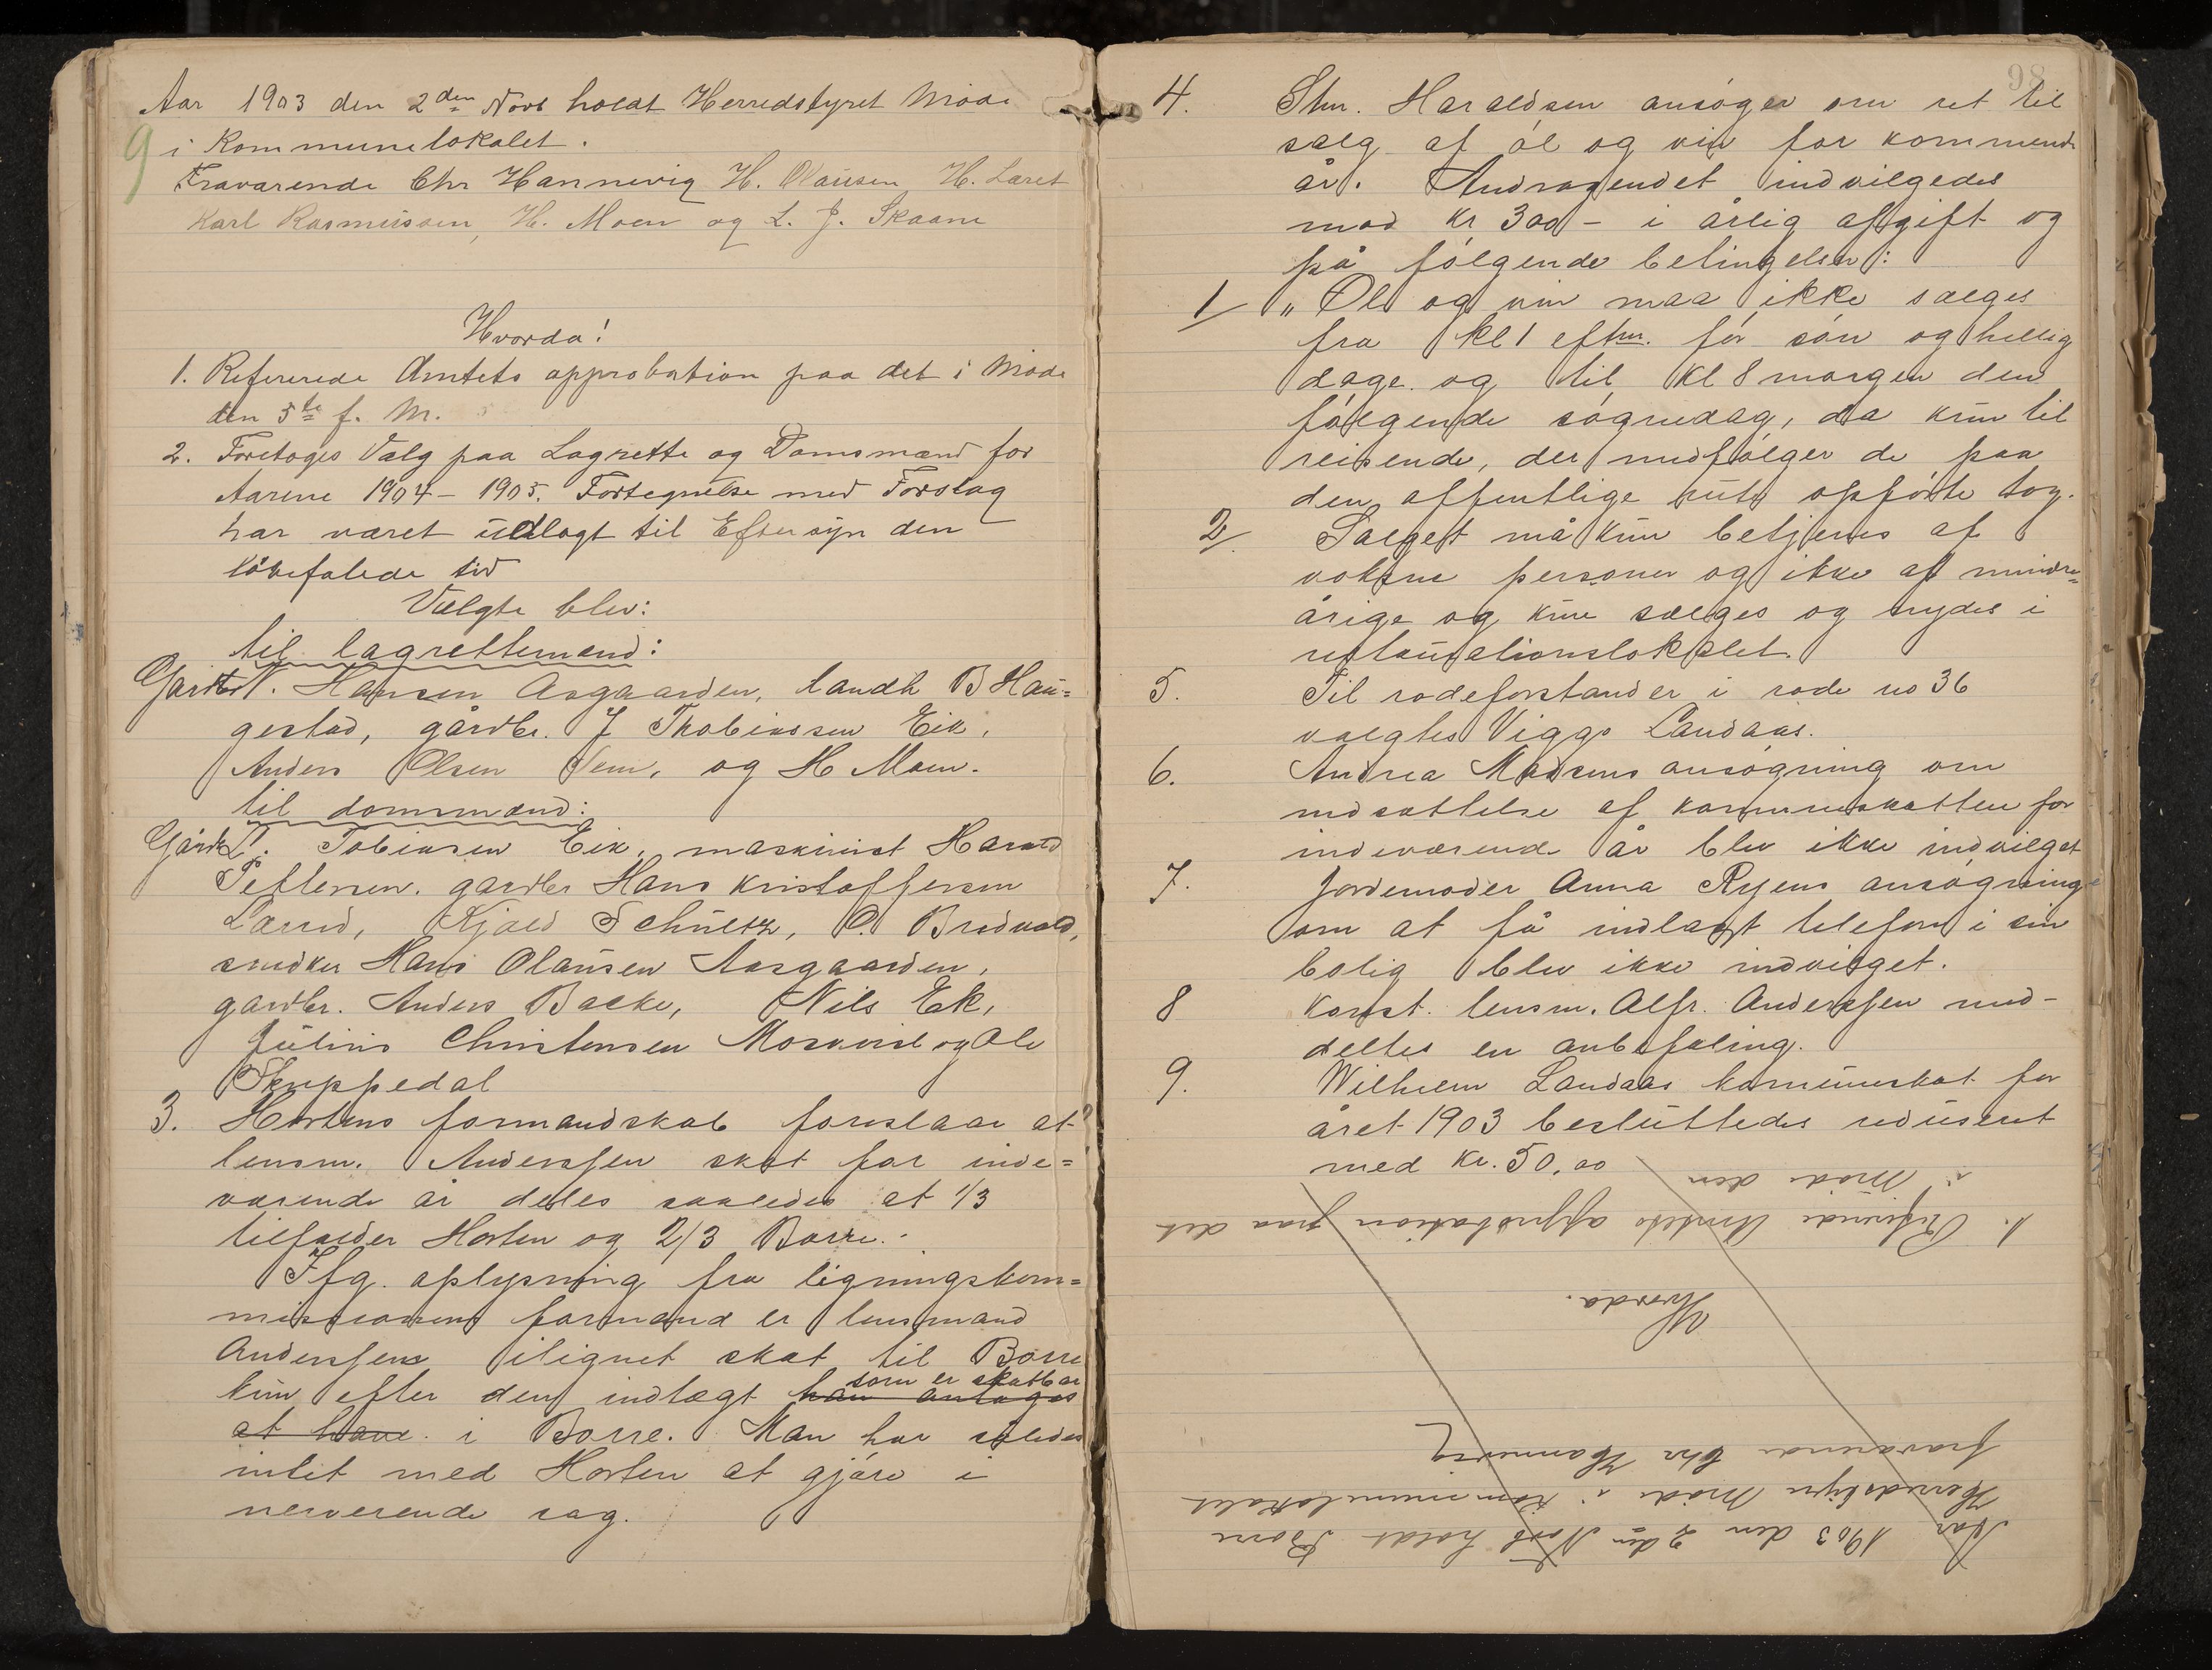 Aar 1903 den 2den Novb holdt Herredstyret Møde
9 i Kommunelokalet.
Fraværende Chr Hannevig H. Olausen H. Løret
Karl Rasmussen, H. Moen og L. J. Skaane
Hvorda!
1. Refererede Amtets approbation paa det i Møde
den 5te f. M.
2. Foretoges Valg paa Lagrette og Domsmænd for
Aarene 1904 - 1905. Fortegnelse med Forslag
har været udlagt til Eftersyn den
lovbefalede tid
Valgte blev:
til lagrettemænd:
Gårdbr N. Hansen Aasgaarden, landh B Hau=
gestad, gårdbr. J Thobiassen Eik,
Anders Olsen Sem, og H Moen.
til domsmænd:
Gårdb T. Tobiasen Eik, maskinist Harald
Pettersen. gardbr Hans Kristoffersen
Lørud, Kjøld Schultz, O. Bredvold,
snedker Hans Olausen Aasgaarden,
gardbr. Anders Bakke, Nils Ek,
Julius Christensen Moskvil og Ole
Skuppedal
3. Hortens formandskab foreslaar at
lensm. Anderssen skat for inde=
værende år deles saaledes at 1/3
tilfalder Horten og 2/3 Borre.
Ifg. oplysning fra ligningskom=
missionens formand er lensmand
Anderssens ilignet skat til Borre
kun efter den indtægt han antages som er skatbar
at have i Borre. Man har således
intet med Horten at gjøre i
nerverende sag.
98
4. Sthr. Haraldsen ansøger om ret til
salg af øl og vin for kommende
år. Andragendet indvilgedes
mod kr 300 - i årlig afgift og
på følgende betingelser:
1/ "Øl og vin maa ikke sælges
fra kl 1 eftm. før søn og hellig
dage og til kl 8 morgen den
følgende søgnedag, da kun til
reisende, der medfølger de paa
den offentlige rute opførte tog.
2/ Salget må kun betjenes af
voksne personer og ikke af mindre=
årige og kun sælges og nydes i
restaurationslokalet.
5. Til rodeforstander i rode no 36
valgtes Viggo Landaas.
6. Andrea Madsens ansøgning om
nedsættelse af kommuneskatten for
indeværende år blev ikke indvilget
7. Jordemoder Anna Ryens ansøgning
om at få indlagt telefon i sin
bolig blev ikke indvilget.
8 Konst. lensm. Alfr. Anderssen med-
deltes en anbefaling.
9. Wilhelm Landaas kommuneskat for
året 1903 besluttedes reduseret
med kr. 50,00
Aar 1903 den 2den Novb holdt Borre
Herredstyre Møde i Kommunelokalet
fraværende Chr Hannevig
Hvorda.
1. Refererede Amtets approbation paa det
i Møde den